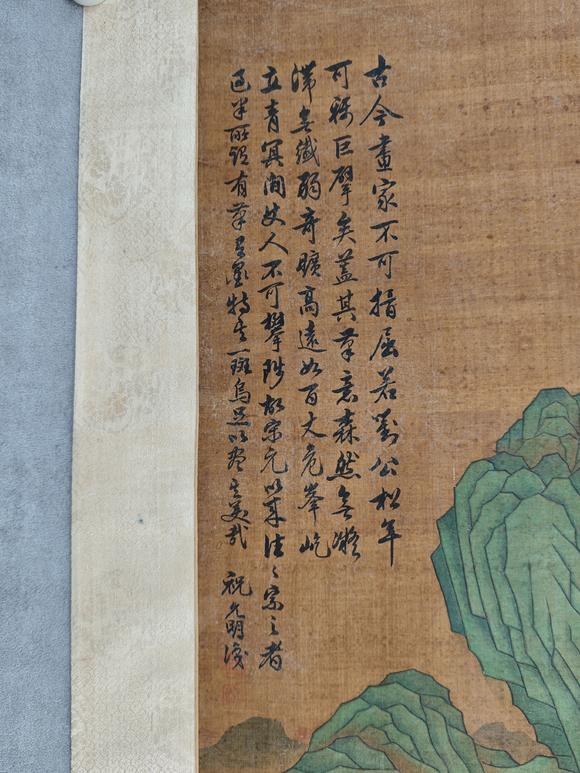 古今畫家不可指屈若劉公松年
可稱巨擘矣蓋其筆意森然無凝
滯無纖弱奇曠高遠如百丈危峯屹
立青冥間使人不可攀陟故宋元以來往〻宗之者
過半所謂有筆有墨特其一斑烏足以盡其美哉 祝允明識